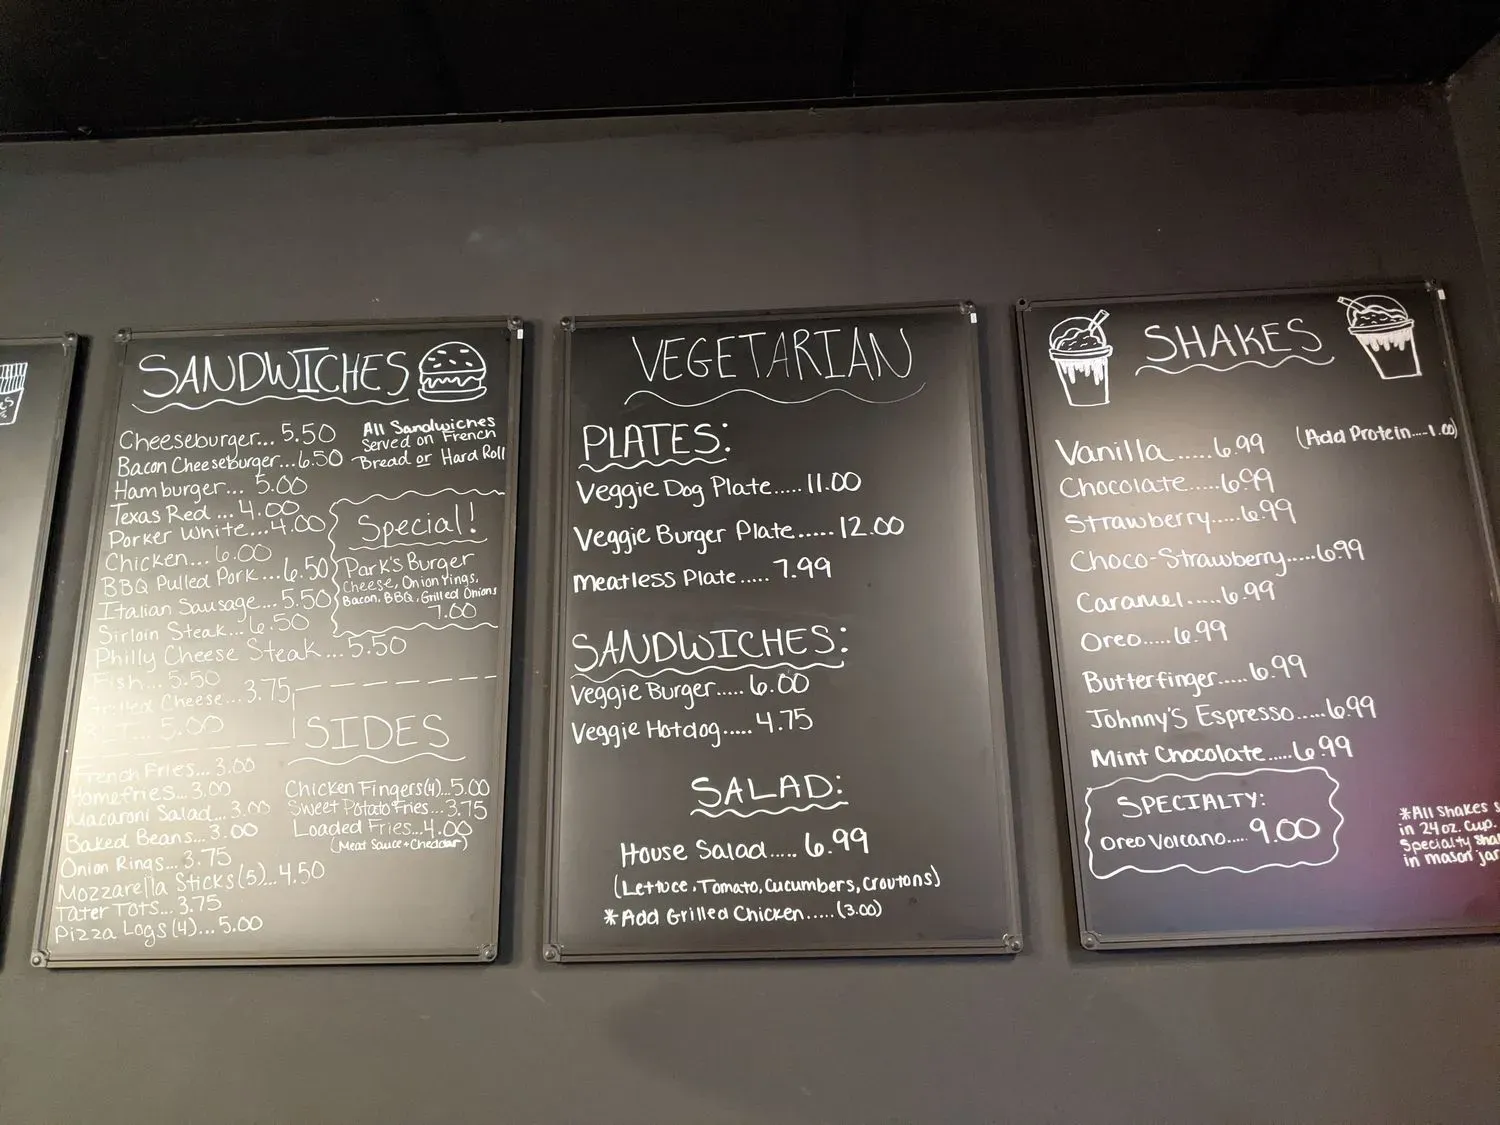 SANDWICHES
Cheeseburger... 5.50
Bacon Cheeseburger...6.50
Hamburger... 5.00
Texas Red ... 4.00
Porker White...4.00
Chicken... 6.00
BBQ Pulled Pork ...6.50
Italian Sausage... 5.50
Sirloin Steak... 6.50
Philly Cheese Steak ...5.50
Fish... 5.50
Grilled Cheese... 3.75
BLT... 5.00
All Sandwiches
Served on French
Bread or Hard Roll
Special!
Park's Burger
Cheese, Onion rings,
Bacon, BBQ, Grilled Onions
7.00
SIDES
French Fries... 3.00
Homefries... 3.00
Macaroni Salad... 3.00
Baked Beans... 3.00
Onion Rings... 3.75
Mozzarella Sticks (5)...4.50
Tater Tots... 3.75
Pizza Logs (4)... 5.00
Chicken Fingers(4)...5.00
Sweet Potato Fries... 3.75
Loaded Fries...4.00
(Meat Sauce + Cheddar)
VEGETARIAN
PLATES:
Veggie Dog Plate..... 11.00
Veggie Burger Plate..... 12.00
Meatless Plate ..... 7.99
SANDWICHES:
Veggie Burger..... 6.00
Veggie Hotdog..... 4.75
SALAD:
House Salad..... 6.99
(Lettuce, Tomato, Cucumbers, Croutons)
*Add Grilled Chicken.....(3.00)
SHAKES
Vanilla .....6.99 (Add Protein....1.00)
Chocolate.....6.99
Strawberry.....6.99
Choco-Strawberry.....6.99
Caramel.....6.99
Oreo.....6.99
Butterfinger.....6.99
Johnny's Espresso.....6.99
Mint Chocolate.....6.99
SPECIALTY:
Oreo Volcano.... 9.00
*All Shakes
in 24oz. Cup.
Specialty
in mason jar